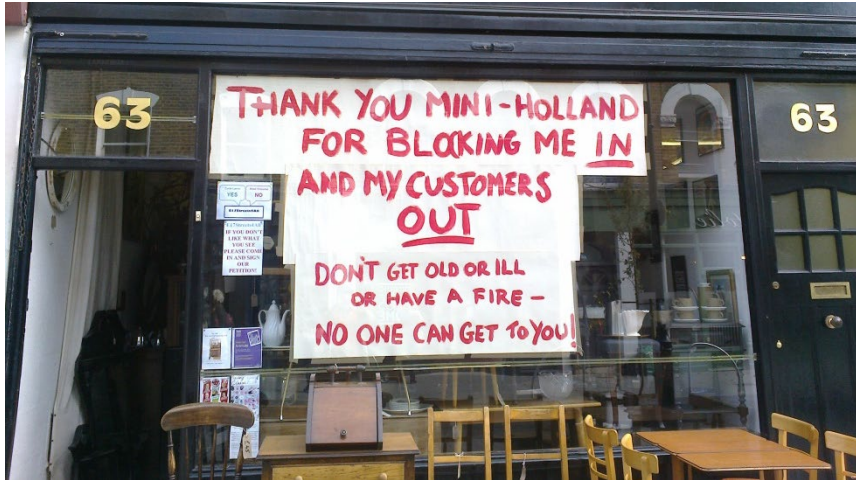 63
63
THANK YOU MINI-HOLLAND
FOR BLOCKING ME IN
AND MY CUSTOMERS
OUT
DON'T GET OLD OR ILL
OR HAVE A FIRE -
NO ONE CAN GET TO YOU!
YES
NO
IF YOU DON'T
LIKE WHAT
YOU SEE
PLEASE COME
IN AND SIGN
OUR
PETITION!